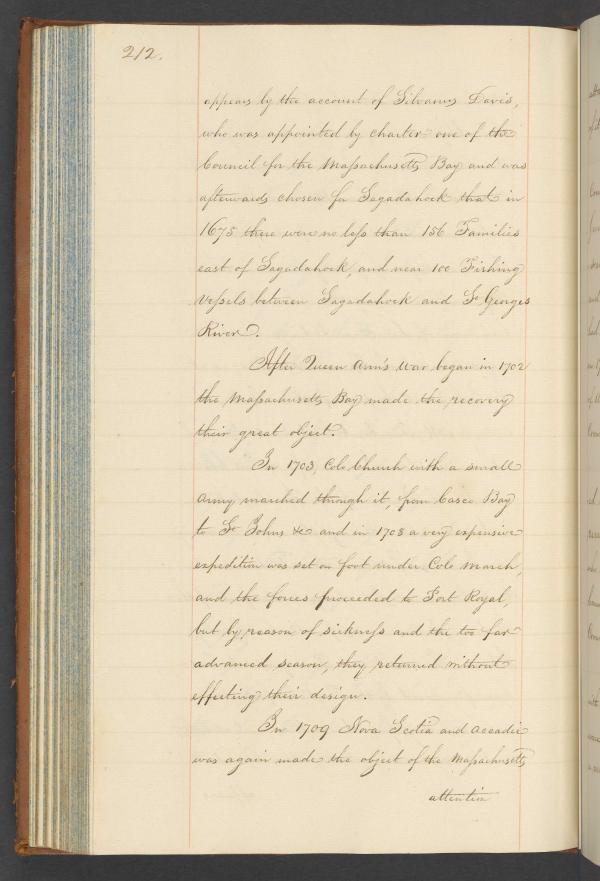 212.
appears by the account of Silvanus Davis,
who was appointed by charter one of the
Council for the Massachusetts Bay and was
afterwards chosen for Sagadahock that in
1675 there were no less than 156 Families
east of Sagadahock, and near 100 Fishing
Vessels between Sagadahock and St Georges
River.
After Queen Ann's War began in 1702
the Massachusetts Bay made the recovery
their great object.
In 1703, Colo Church with a small
army marched through it, from Casco Bay
to St Johns &c and in 1708 a very expensive
expedition was set on foot under Colo March,
and the forces proceeded to Port Royal,
but by reason of sickness and the too far
advanced season, they returned without
effecting their design.
In 1709 Nova Scotia and Accadie
was again made the object of the Massachusetts
attention